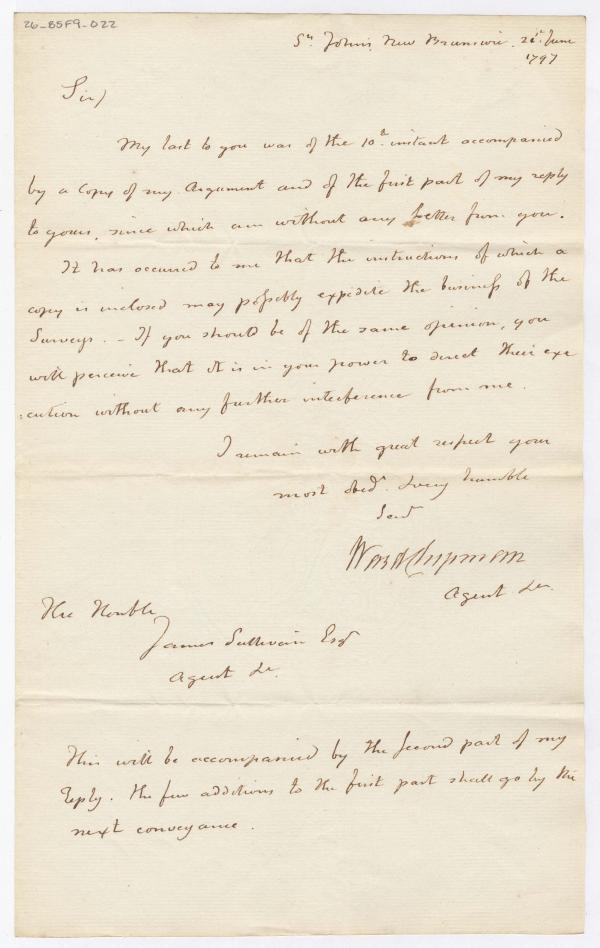 26-85F9-022
St. Johns, New Brunswic, 21st. June
1797
Sir,
My last to you was of the 10th. instant accompanied
by a Copy of my Argument and of the first part of my reply
to yours, since which am without any Letter from you.
It has occurred to me that the instructions of which a
copy is inclosed may possibly expedite the business of the
Surveys. – If you should be of the same opinion, you
will perceive that it is in your power to direct their exe
:cution without any further interference from me.
I remain with great respect your
most obedt. & very humble
Servt
Ward Chipman
Agent &c.
The Honble
James Sullivan Esqr
Agent &c.
This will be accompanied by the second part of my
reply. The few additions to the first part shall go by the
next conveyance.